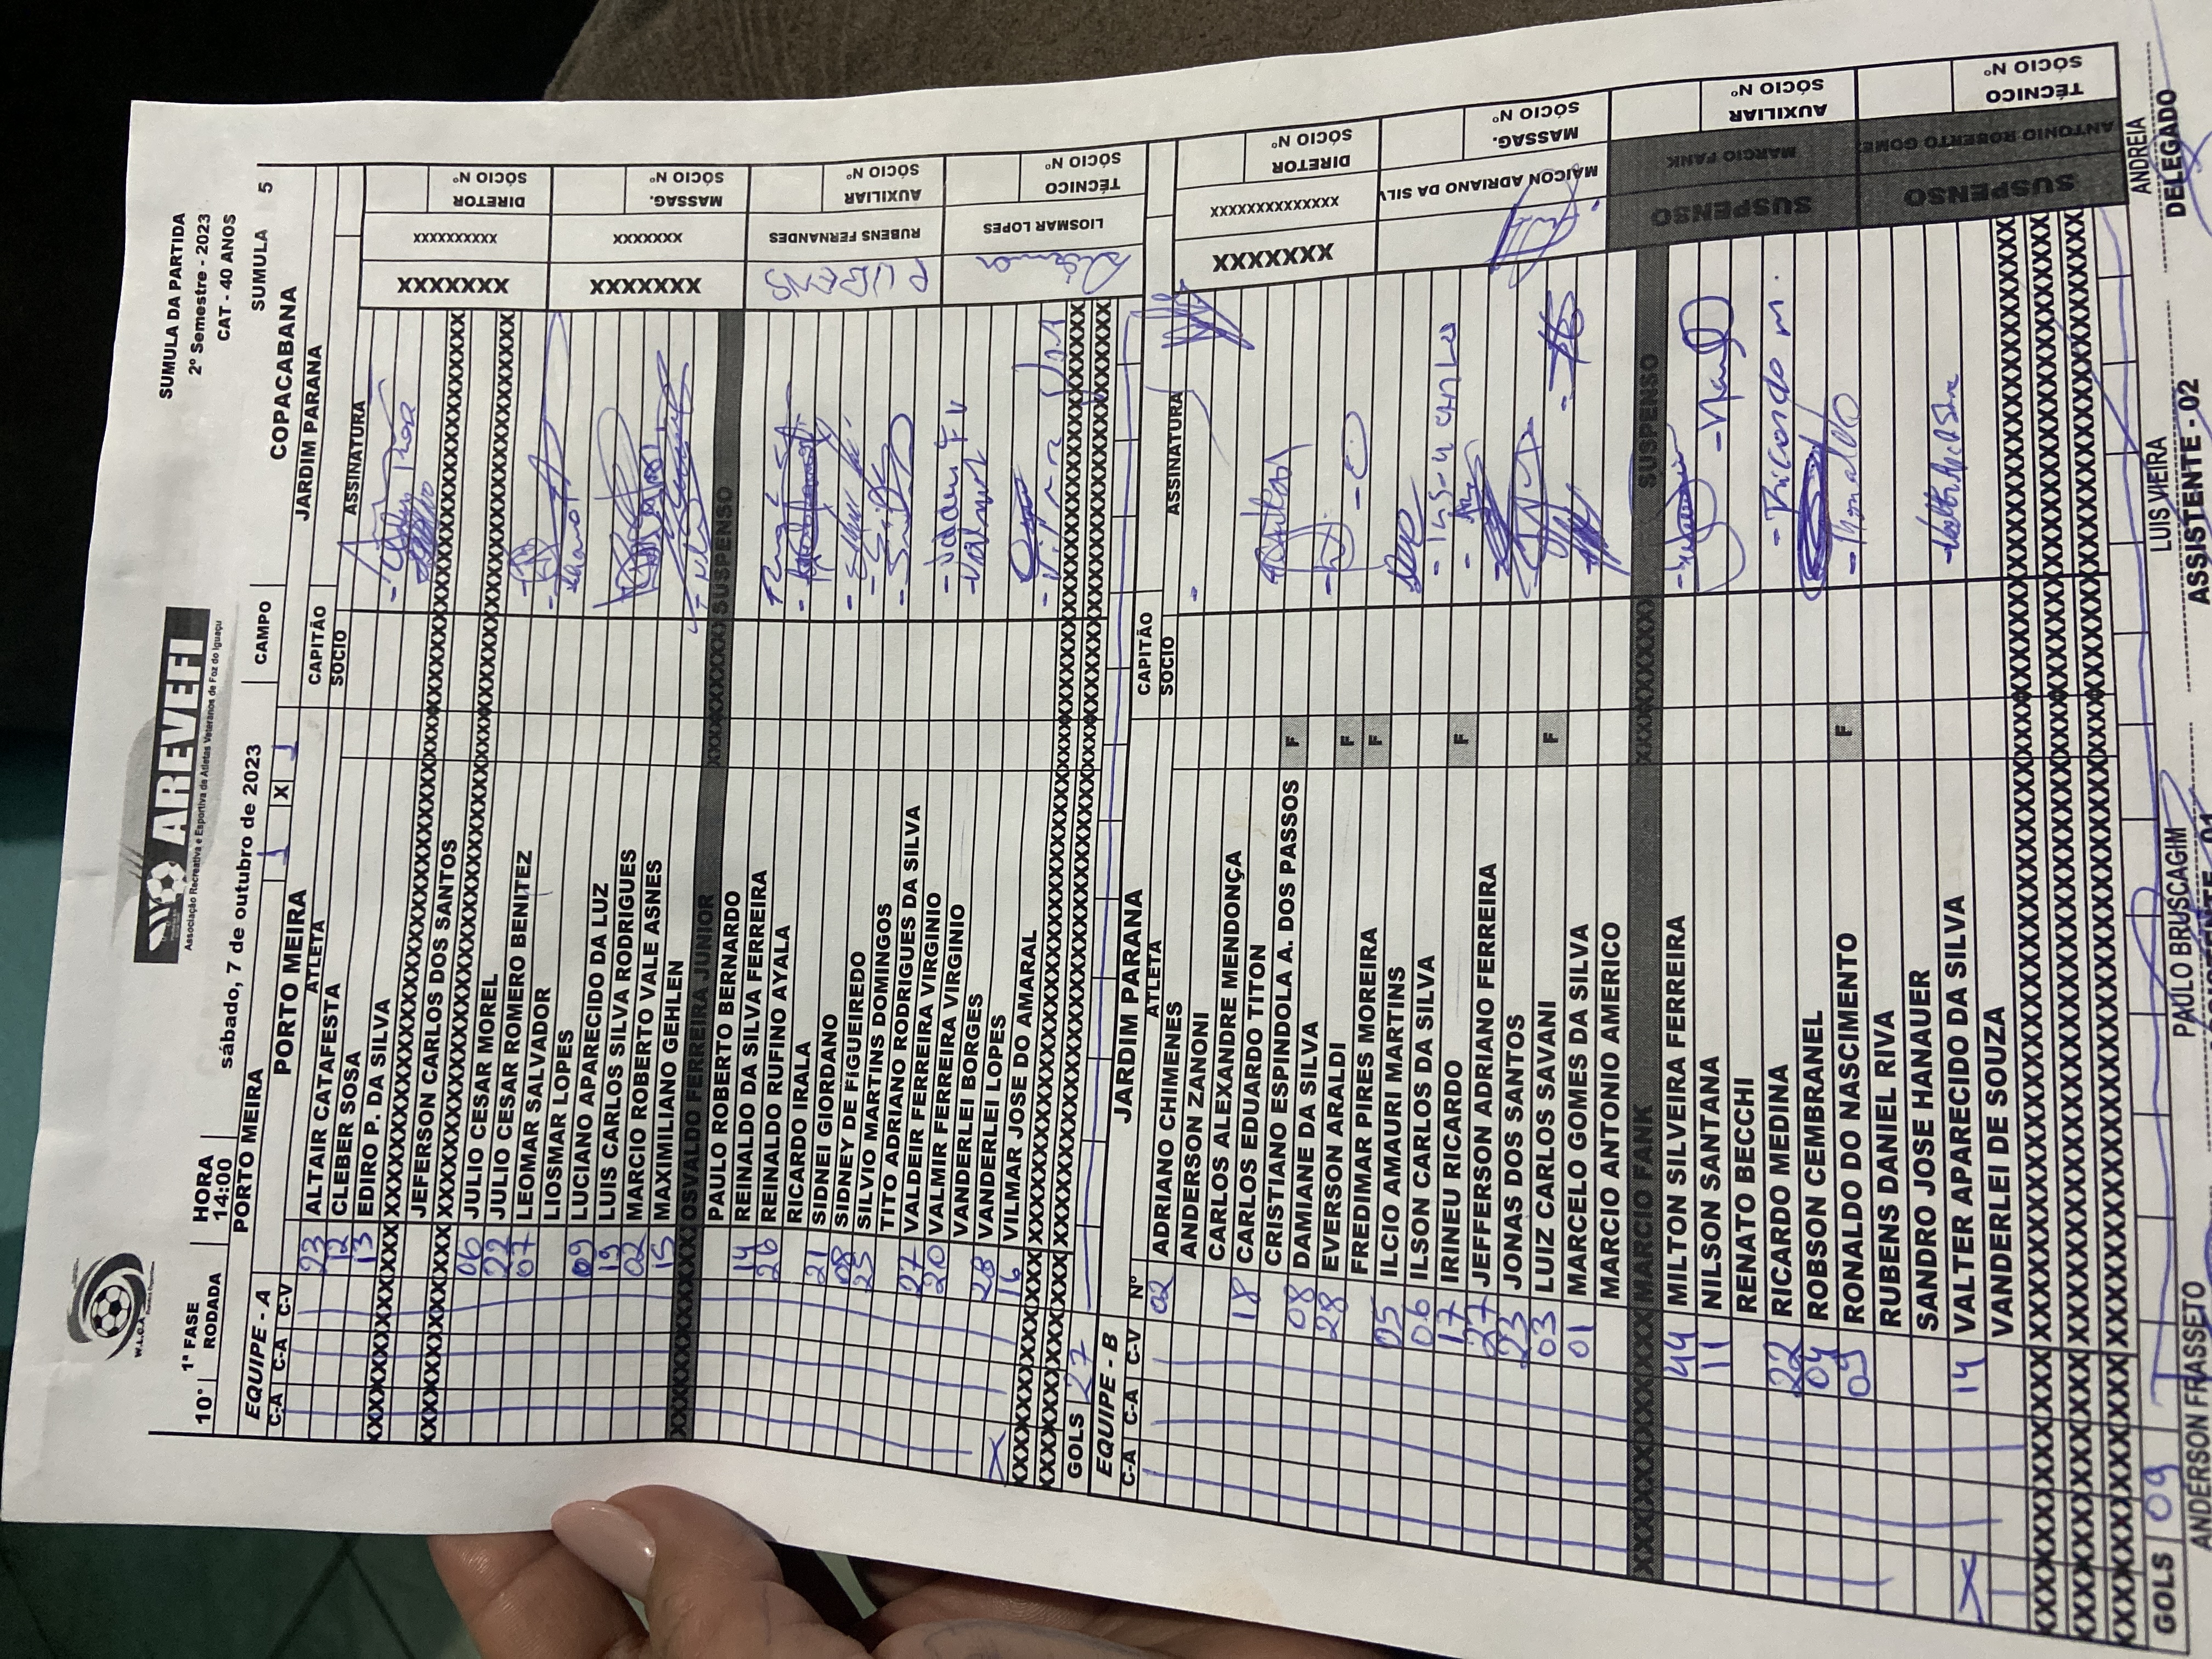 W.L.C.A.
AREVEFI
Associação Recreativa e Esportiva de Atletas Veteranos de Foz do Iguaçu
SUMULA DA PARTIDA
2º Semestre - 2023
CAT - 40 ANOS
10° 1ª FASE RODADA
HORA 14:00
sábado, 7 de outubro de 2023
CAMPO
SUMULA 5
PORTO MEIRA
COPACABANA
EQUIPE - A PORTO MEIRA 1 X 1 JARDIM PARANA
C-A C-A C-V ATLETA CAPITÃO
SOCIO ASSINATURA
23 ALTAIR CATAFESTA
12 CLEBER SOSA
13 EDIRO P. DA SILVA
JEFERSON CARLOS DOS SANTOS
06 JULIO CESAR MOREL
22 JULIO CESAR ROMERO BENITEZ
07 LEOMAR SALVADOR
LIOSMAR LOPES
09 LUCIANO APARECIDO DA LUZ
19 LUIS CARLOS SILVA RODRIGUES
02 MARCIO ROBERTO VALE ASNES
15 MAXIMILIANO GEHLEN
OSVALDO FERREIRA JUNIOR SUSPENSO
PAULO ROBERTO BERNARDO
14 REINALDO DA SILVA FERREIRA
26 REINALDO RUFINO AYALA
RICARDO IRALA
21 SIDNEI GIORDANO
08 SIDNEY DE FIGUEIREDO
25 SILVIO MARTINS DOMINGOS
TITO ADRIANO RODRIGUES DA SILVA
27 VALDEIR FERREIRA VIRGINIO
20 VALMIR FERREIRA VIRGINIO
VANDERLEI BORGES
28 VANDERLEI LOPES
16 VILMAR JOSE DO AMARAL
GOLS 27
XXXXXXX
XXXXXXXXXX
DIRETOR
SÓCIO Nº
XXXXXXX
XXXXXXX
MASSAG.
SÓCIO Nº
RUBENS
RUBENS FERNANDES
AUXILIAR
SÓCIO Nº
LIOSMAR LOPES
TÉCNICO
SÓCIO Nº
EQUIPE - B JARDIM PARANA CAPITÃO
C-A C-A C-V Nº ATLETA SOCIO ASSINATURA
02 ADRIANO CHIMENES
ANDERSON ZANONI
CARLOS ALEXANDRE MENDONÇA
18 CARLOS EDUARDO TITON
CRISTIANO ESPINDOLA A. DOS PASSOS F
08 DAMIANE DA SILVA
28 EVERSON ARALDI F
FREDIMAR PIRES MOREIRA F
05 ILCIO AMAURI MARTINS
06 ILSON CARLOS DA SILVA
17 IRINEU RICARDO F
27 JEFFERSON ADRIANO FERREIRA
23 JONAS DOS SANTOS
03 LUIZ CARLOS SAVANI F
01 MARCELO GOMES DA SILVA
MARCIO ANTONIO AMERICO
MARCIO FANK SUSPENSO
44 MILTON SILVEIRA FERREIRA
11 NILSON SANTANA
RENATO BECCHI
22 RICARDO MEDINA Ricardo M.
04 ROBSON CEMBRANEL
09 RONALDO DO NASCIMENTO F Ronaldo
RUBENS DANIEL RIVA
SANDRO JOSE HANAUER
14 VALTER APARECIDO DA SILVA
VANDERLEI DE SOUZA
GOLS 09
XXXXXXX
XXXXXXXXXXXXXX
DIRETOR
SÓCIO Nº
MAICON ADRIANO DA SILV
MASSAG.
SÓCIO Nº
SUSPENSO
MARCIO FANK
AUXILIAR
SÓCIO Nº
SUSPENSO
ANTONIO ROBERTO GOME
TÉCNICO
SÓCIO Nº
ANDERSON FRASSETO PAULO BRUSCAGIM LUIS VIEIRA ANDREIA
ASSISTENTE - 02 DELEGADO